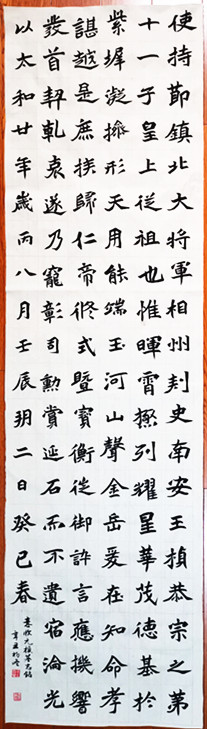 使持節鎮北大將軍相州刺史南安王楨恭宗之第
十一子呈上從祖也惟暉霄極列耀星華茂德基於
紫墀凝操形天用能端玉河山聲金岳爰在知命孝
諶越是庶族歸仁帝脩式暨寶衡徙御許言應機響
發首契乾衷遂乃寵彰司勳賞延石而不遺宿淪光
以太和廿年歲丙八月壬辰朔二日癸巳春
元楨墓志銘
辛丑